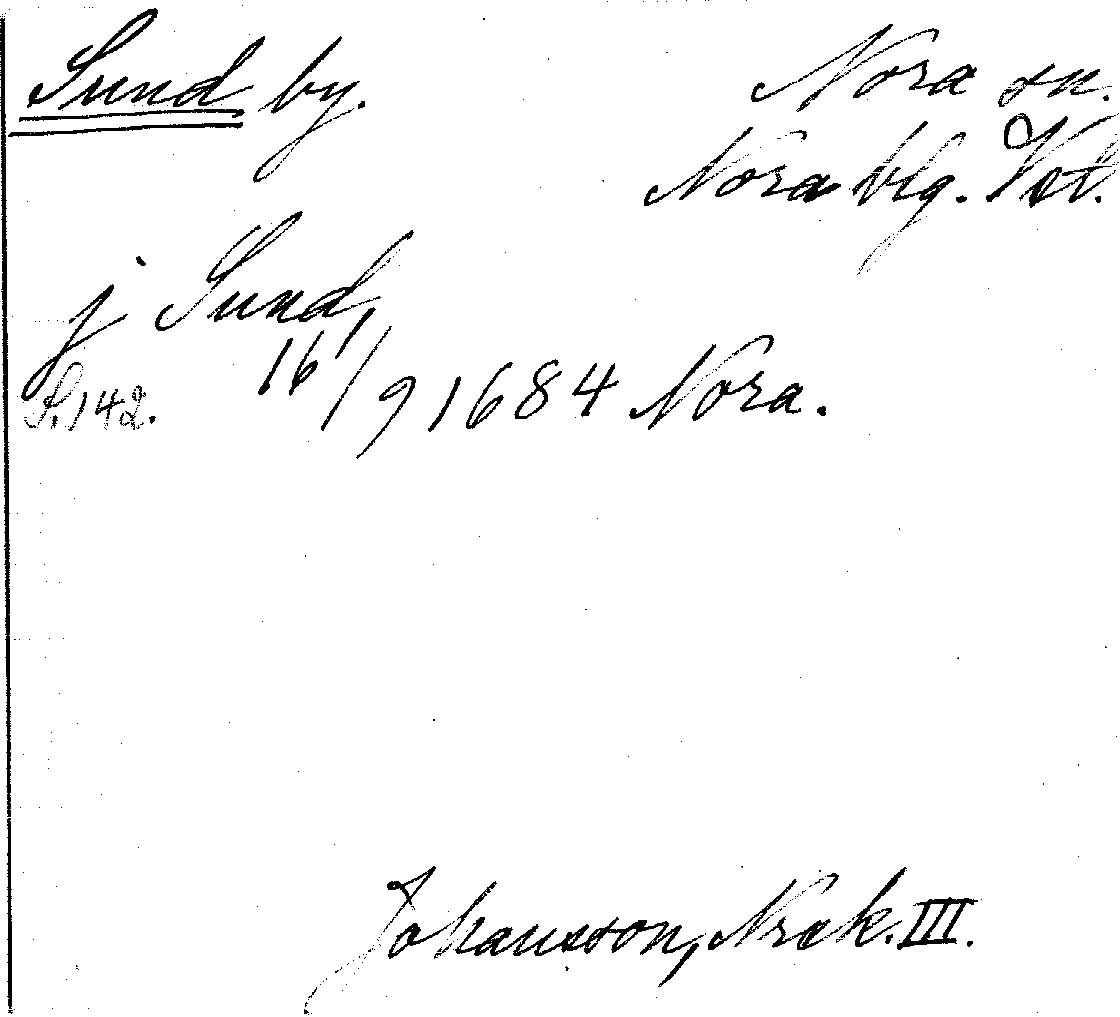 Sund by.
Nora sn.
Nora blg. Vstl.
j Sund,
S. 142.
16/9 1684 Nora.
Johansson, Nrek. III.